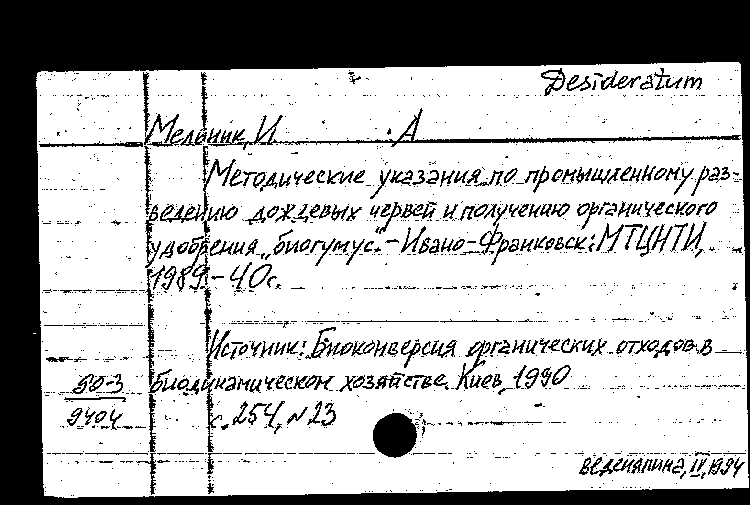 Desideratum
Мельник, И. А
Методические указания по промышленному раз-
ведению дождевых червей и получению органического
удобрения „биогумус“.- Ивано-Франковск: МТЦНТИ,
1989.- 40с.
Источник: Биоконверсия органических отходов в
90-3 биодинамическом хозяйстве. Киев, 1990
9404 с. 254, №23
Веденяпина, IV, 1994